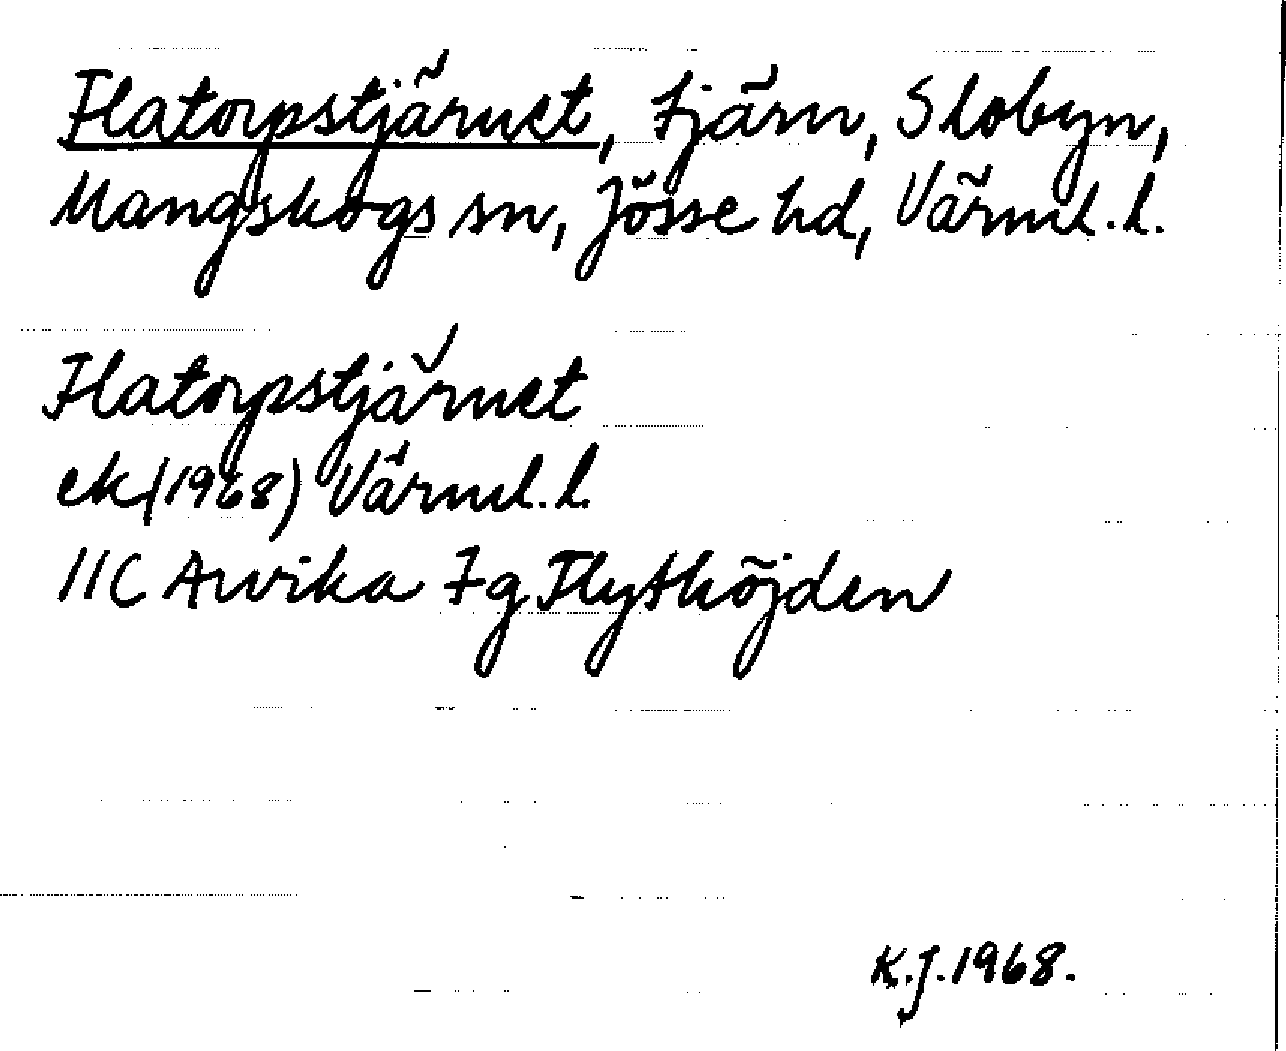 Flatorpstjärnet, tjärn, Slobyn,
Mangskogs sn, Jösse hd, Värml. l.
Flatorpstjärnet
ek (1968) Värml. l.
11C Arvika 7g Flythöjden
K.J. 1968.